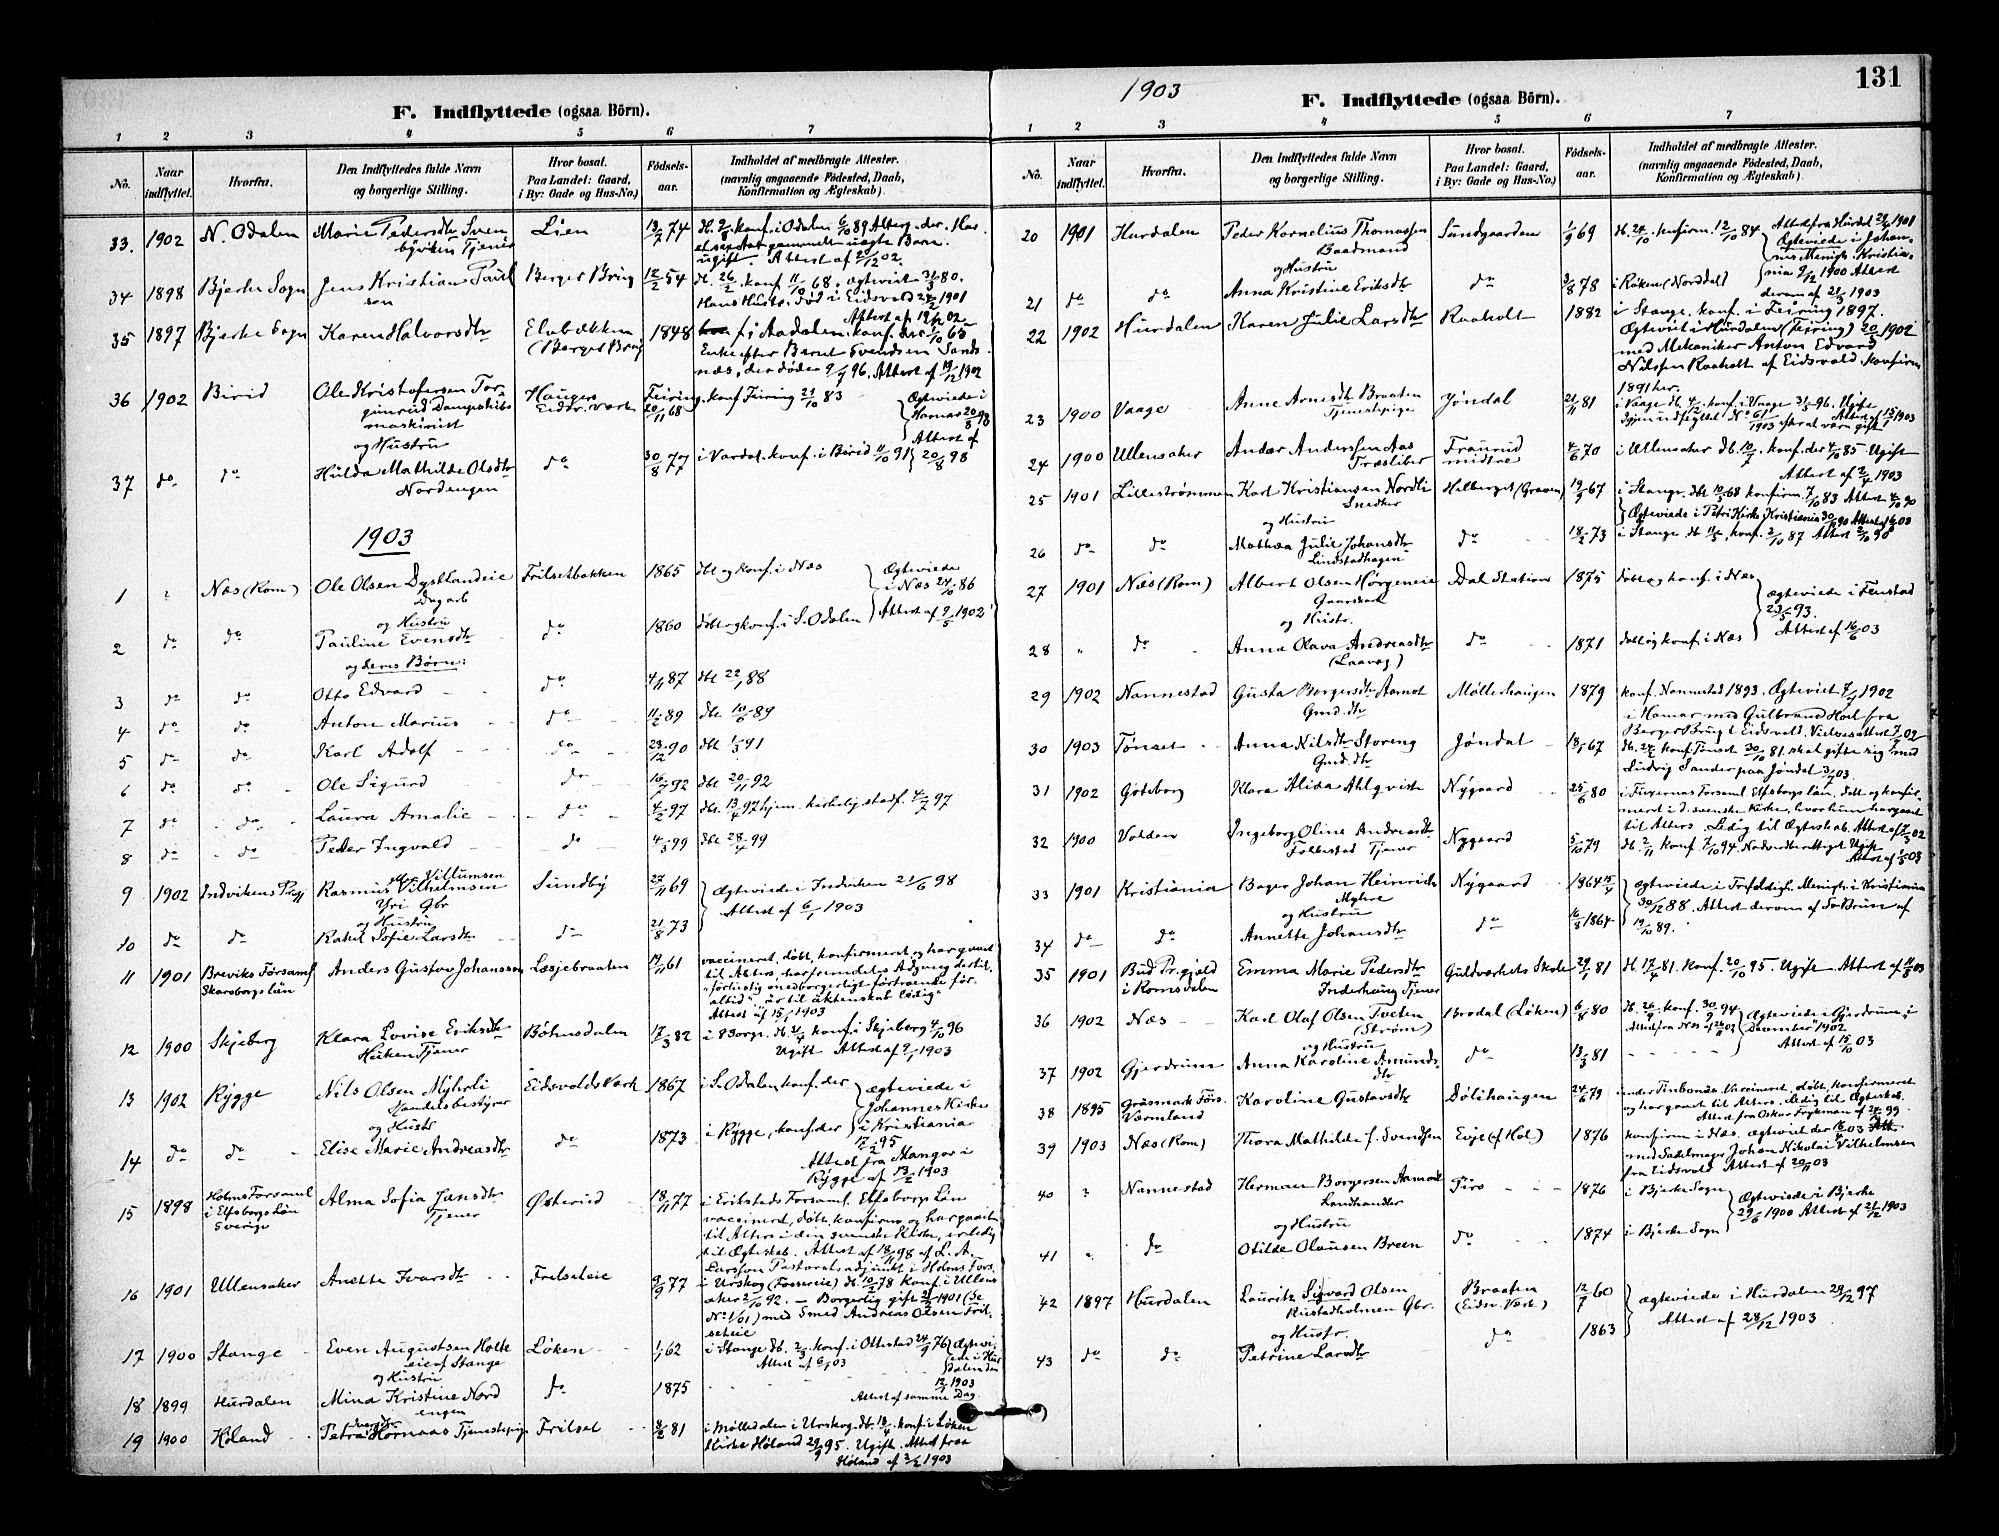 F. Indflyttede (ogsaa Börn).
1 2 3 4 5 6 7
No. Naar indflyttet. Hvorfra. Den Indflyttedes fulde Navn og borgerlige Stilling. Hvor bosat. Paa Landet: Gaard, i By: Gade og Hus-No.) Födsels-aar. Indholdet af medbragte Attester. (navnlig angaaende Födested, Daab, Konfirmation og Ægteskab).
33. 1902 N. Odalen Marie Pedersdtr Sven Lien 13/7 74 db. 2/8 konf. i Odalen 6/10 89
Tjener
ugift. Attest af 12 02.
34 1898 Bjerke Sogn Jens Kristians Paul Berger Brug 12/2 54 db. 26/2 konf 11/10 68. ægteviet 31/3 80.
sen Hans Hustr. död i Eidsvold 1901
35 1897 Bjerke Sogn Karen Halvorsdtr Elvbækken 1848 f. i Aadalen. konf. der 1/10 65
(Berger Brug Enke efter Bernt Svendsen Sands
næs, der döde 9/9 96. Attest af 19/12 1902
36 1902 Birid Ole Kristofersen Tor- Haugers Feiring konf Feiring 21/10 83 Ægteviede i
Dampskibs Eidsv. Værk 20/11 68 Hamar 20/8 98
maskinist
og Hustru Attest af
37 do do Hulda Mathilde Olsdtr do 30/8 77 i Vardal. konf. i Birid 11/10 91 20/8 98
Nordengen
1903
1 " Næs (Rom) Ole Olsen Dystlandeie Frilsetbakken 1865 dbt og konf. i Næs Ægteviede
Dagarb i Næs 24/10 86
og Hustru Attest af 9/5 1902
2 do do Pauline Evensdtr do 1860 döbt og konf. i S. Odalen
og deres Børn:
3 do do Otto Edvard do 4/11 87 dbt 22/1 88
4 do do Anton Marius do 11/2 89 dbt 10/6 89
5 do do Karl Adolf do 23/12 90 dbt 1/3 91
6 do do Ole Sigurd do 16/7 92 dbt 20/11 92
7 do do Laura Amalie do 4/2 97 dbt. 13/4 97 hjem. kirkelig stadf. 4/7 97
8 do do Peder Ingvald do 4/3 99 dbt 28/4 99
9 1902 Indvikens Prgj Rasmus Vilhelmsen Sundby 27/11 69 Ægteviede i Indviken 21/6 98
Yri Gbr Attest af 6/1 1903
og Hustru
10 do do Rakel Sofie Larsdtr do 21/8 73
11 1901 Breviks Församl Anders Gustav Johansson Læsjebraaten 19/11 61 vaccineret, döbt, konfirmeret og har gaaet
Skarsborgs län til Alters, har
altid", "är til äktenskab ledig"
Attest af 15/1 1903
12 1900 Skjeberg Klara Lovise Eriksdtr Böhnsdalen 17/3 82 konf. i Skjeberg 4/10 96
Tjener Ugift Attest af 9/1 1903
13 1902 Rygge Nils Olsen Myhrli Eidsvolds Værk 1867 i S. Odalen konf. der ægteviede i
Handelsbestyrer Johannes Kirke
og Hustr i Kristiania
14 do do Elise Marie Andreasdtr do 1873 i Rygge, konf. der 17/2 95
Attest fra Mangor i
Rygge af 13/2 1903
15 1898 Holms Forsaml Alma Sofia Jansdtr Østerud 18/11 77 i Eriksteds Forsaml. Elfsborgs Län
i Elfsborgs Län Tjener vaccineret, döbt, konfirm. og har gaaet
Sverige til Alters i den svenske Kirke, er ledig
til Ægteskab. Attest af 18/11 98 af L. A.
Larsson Pastorats adjunkt i Holms Fors.
16 1901 Ullensaker Anette Ivarsdtr Frilseteie 9/9 77 i Urskog db. 10/2 78 konf. i Ullens
aker 2/10 92. — Borgerlig gift 1901 (Se
No 1/01) med Smed Andreas Olsen Fril-
seteie
17 1900 Stange Even Augustsen Holte Løken 1/1 62 i Stange db. 2/3. konf. i Ottestad 24/9 76 Ægtevi-
eie af Stange Attest af 6/1 03 ede i Hur
og Hustru dalen den
18 1899 Hurdalen Mina Kristine Nord do 1875 1903
engen Attest af samme Dag.
19 1900 Höland Petra Hornaas Tjenestepige Frilset 8/2 81 i Mölledalen i Urskog. db. 18/4 konf. i Løken
Kirke Höland 29/9 95. Ugift. Attest fra
Höland af 3/2 1903
1903 131
F. Indflyttede (ogsaa Börn).
1 2 3 4 5 6 7
No. Naar indflyttet. Hvorfra. Den Indflyttedes fulde Navn og borgerlige Stilling. Hvor bosat. Paa Landet: Gaard, i By: Gade og Hus-No.) Födsels-aar. Indholdet af medbragte Attester. (navnlig angaaende Födested, Daab, Konfirmation og Ægteskab).
20 1901 Hurdalen Peder Kornelius Thomassen Sundgaarden 1/9 69 db. 24/10. konfirm. 12/10 84 Attest fra Hurdal 1901
Baadmand Ægteviede i Johan-
og Hustru nes Menigh. Kristia-
21 do do Anna Kristine Eriksdtr do 3/8 78 i Röken (Norddal) nia 9/12 1900 Attest
derom af 21/3 1903
22 1902 Hurdalen Karen Julie Larsdtr Raaholt 1882 i Stange. konf. i Feiring 1897.
Ægteviet i Hurdalen (Feiring) 20/10 1902
med Mekaniker Anton Edvard
Nilssen Raaholt af Eidsvold. konfirm
1891 her.
23 1900 Vaage Anne Arnesdtr Braaten Jöndal 21/11 81 i Vaage db. 4/12. konf. i Vaage 31/5 96. Ugift
Tjenestepige Igjen udflyttet No 61/1903
24 1900 Ullensaker Andor Andersen Aas Fraurud 4/6 70 i Ullensaker db. 10/7. konf. der 4/10 85. Ugift
Træsliber midtre Attest af 2/4 1903
25 1901 Lilleströmmen Karl Kristiansen Nordli Helberget (Graven) 19/9 67 i Stange. konfirm. 7/10 83
Snedker Ægteviede i Petri Kirke Kristiania
og Hustru
26 do do Mathea Julie Johansdtr do 18/2 73 i Stange db 11/5. konf. 2/10 87 Attest 2/10 90
Lindstadhagen
27 1901 Næs (Rom) Albert Olsen Hörgeneie Dal Station 1875 döbt og konf. i Næs ægteviede i Fenstad
og Hustr. 23/5 93.
28 " do Anna Olava Andreasdtr do 1871 döbt og konf. i Næs Attest af 16/6 03
29 1902 Nannestad Gusta Borgersdtr Aamot Möllerhaugen 1879 konf. Nannestad 1893. Ægteviet 1902
Gmd. dtr i Hamar med Gulbrand Hoel fra
Berger Brug i Eidsvold. Vielsesattest 02
30 1903 Tönset Anna Nilsdtr Storeng Jöndal 18/1 67 db. 24/2 konf. Tönset 30/10 81. skal gifte sig med
Gmd. dtr Ludvig Sander paa Jöndal 3/7 03.
31 1902 Göteborg Klara Alida Ahlqvist Nygaard 25/6 80 i Forsaml Elfsborgs Län. döbt og konfir-
meret i d. svenske Kirke, hvor hun har gaaet
til Alters. Ledig til Ægteskab.
32 1900 Volden Ingeborg Oline Andreasdtr Nygaard 5/10 79 db. 2/11 konf. 7/10 94. Nadverdberettiget Ugift
Follestad Tjener
33 1901 Kristiania Bager Johan Heinrich Nygaard 1864 15/4 ægteviede i Trefoldigh. Menigh. i Kristiania
Myhre 30/12 88. Attest derom af
og Hustru 19/10 89.
34 do do Annette Johansdtr do 16/8 1864
35 1901 Bud Pr.gjeld Emma Marie Pedersdtr Guldværkets Skole 29/1 81 db. 17/4 81. konf. 20/10 95. Ugift. Attest af 11/8 03
i Romsdalen Inderhaug Tjener
36 1902 Næs Karl Olaf Olsen Tveten Brodal (Löken) 6/8 80 db. 26/9. konf. 30/9 94 Ægteviede i Gjerdrum i
(Ström) December 1902
og Hustru Attest af 15/10 03
37 1902 Gjerdrum Anna Karoline Amunds- do 13/3 81
dtr
38 1895 Gräsmark Förs. Karoline Gustavsdtr Dölihaugen 24/6 79 vaccineret, döbt, konfirmeret
Värmland og har gaaet til Alters. Ledig til Ægteskab.
Attest fra Oskar Frykman af 99
39 1903 Næs (Rom) Thora Mathilde f. Svendsen Evje (f Hol) 1876 konfirm i Næs. ægteviet der 03
med Sadelmager Johan Nikolai Vilhelmsen
fra Eidsvold Attest af 20/11 03
40 " Nannestad Herman Borgersen Aamodt Tiro 1876 i Bjerke Sogn Ægteviede i Bjerke
Landhandler 29/6 1900 Attest af 21/12 1903
og Hustru
41 " do Otilde Olausen Breen do 1874 i Bjerke Sogn
42 1897 Hurdalen Lauritz Sigvard Olsen Braaten 12/7 60 ægteviede i Hurdalen 29/12 97
Rustadholmen Gbr. (Eidsv. Værk) Attest af 28/12 1903
og Hustr. do 1863
43 do do Petrine Larsdtr